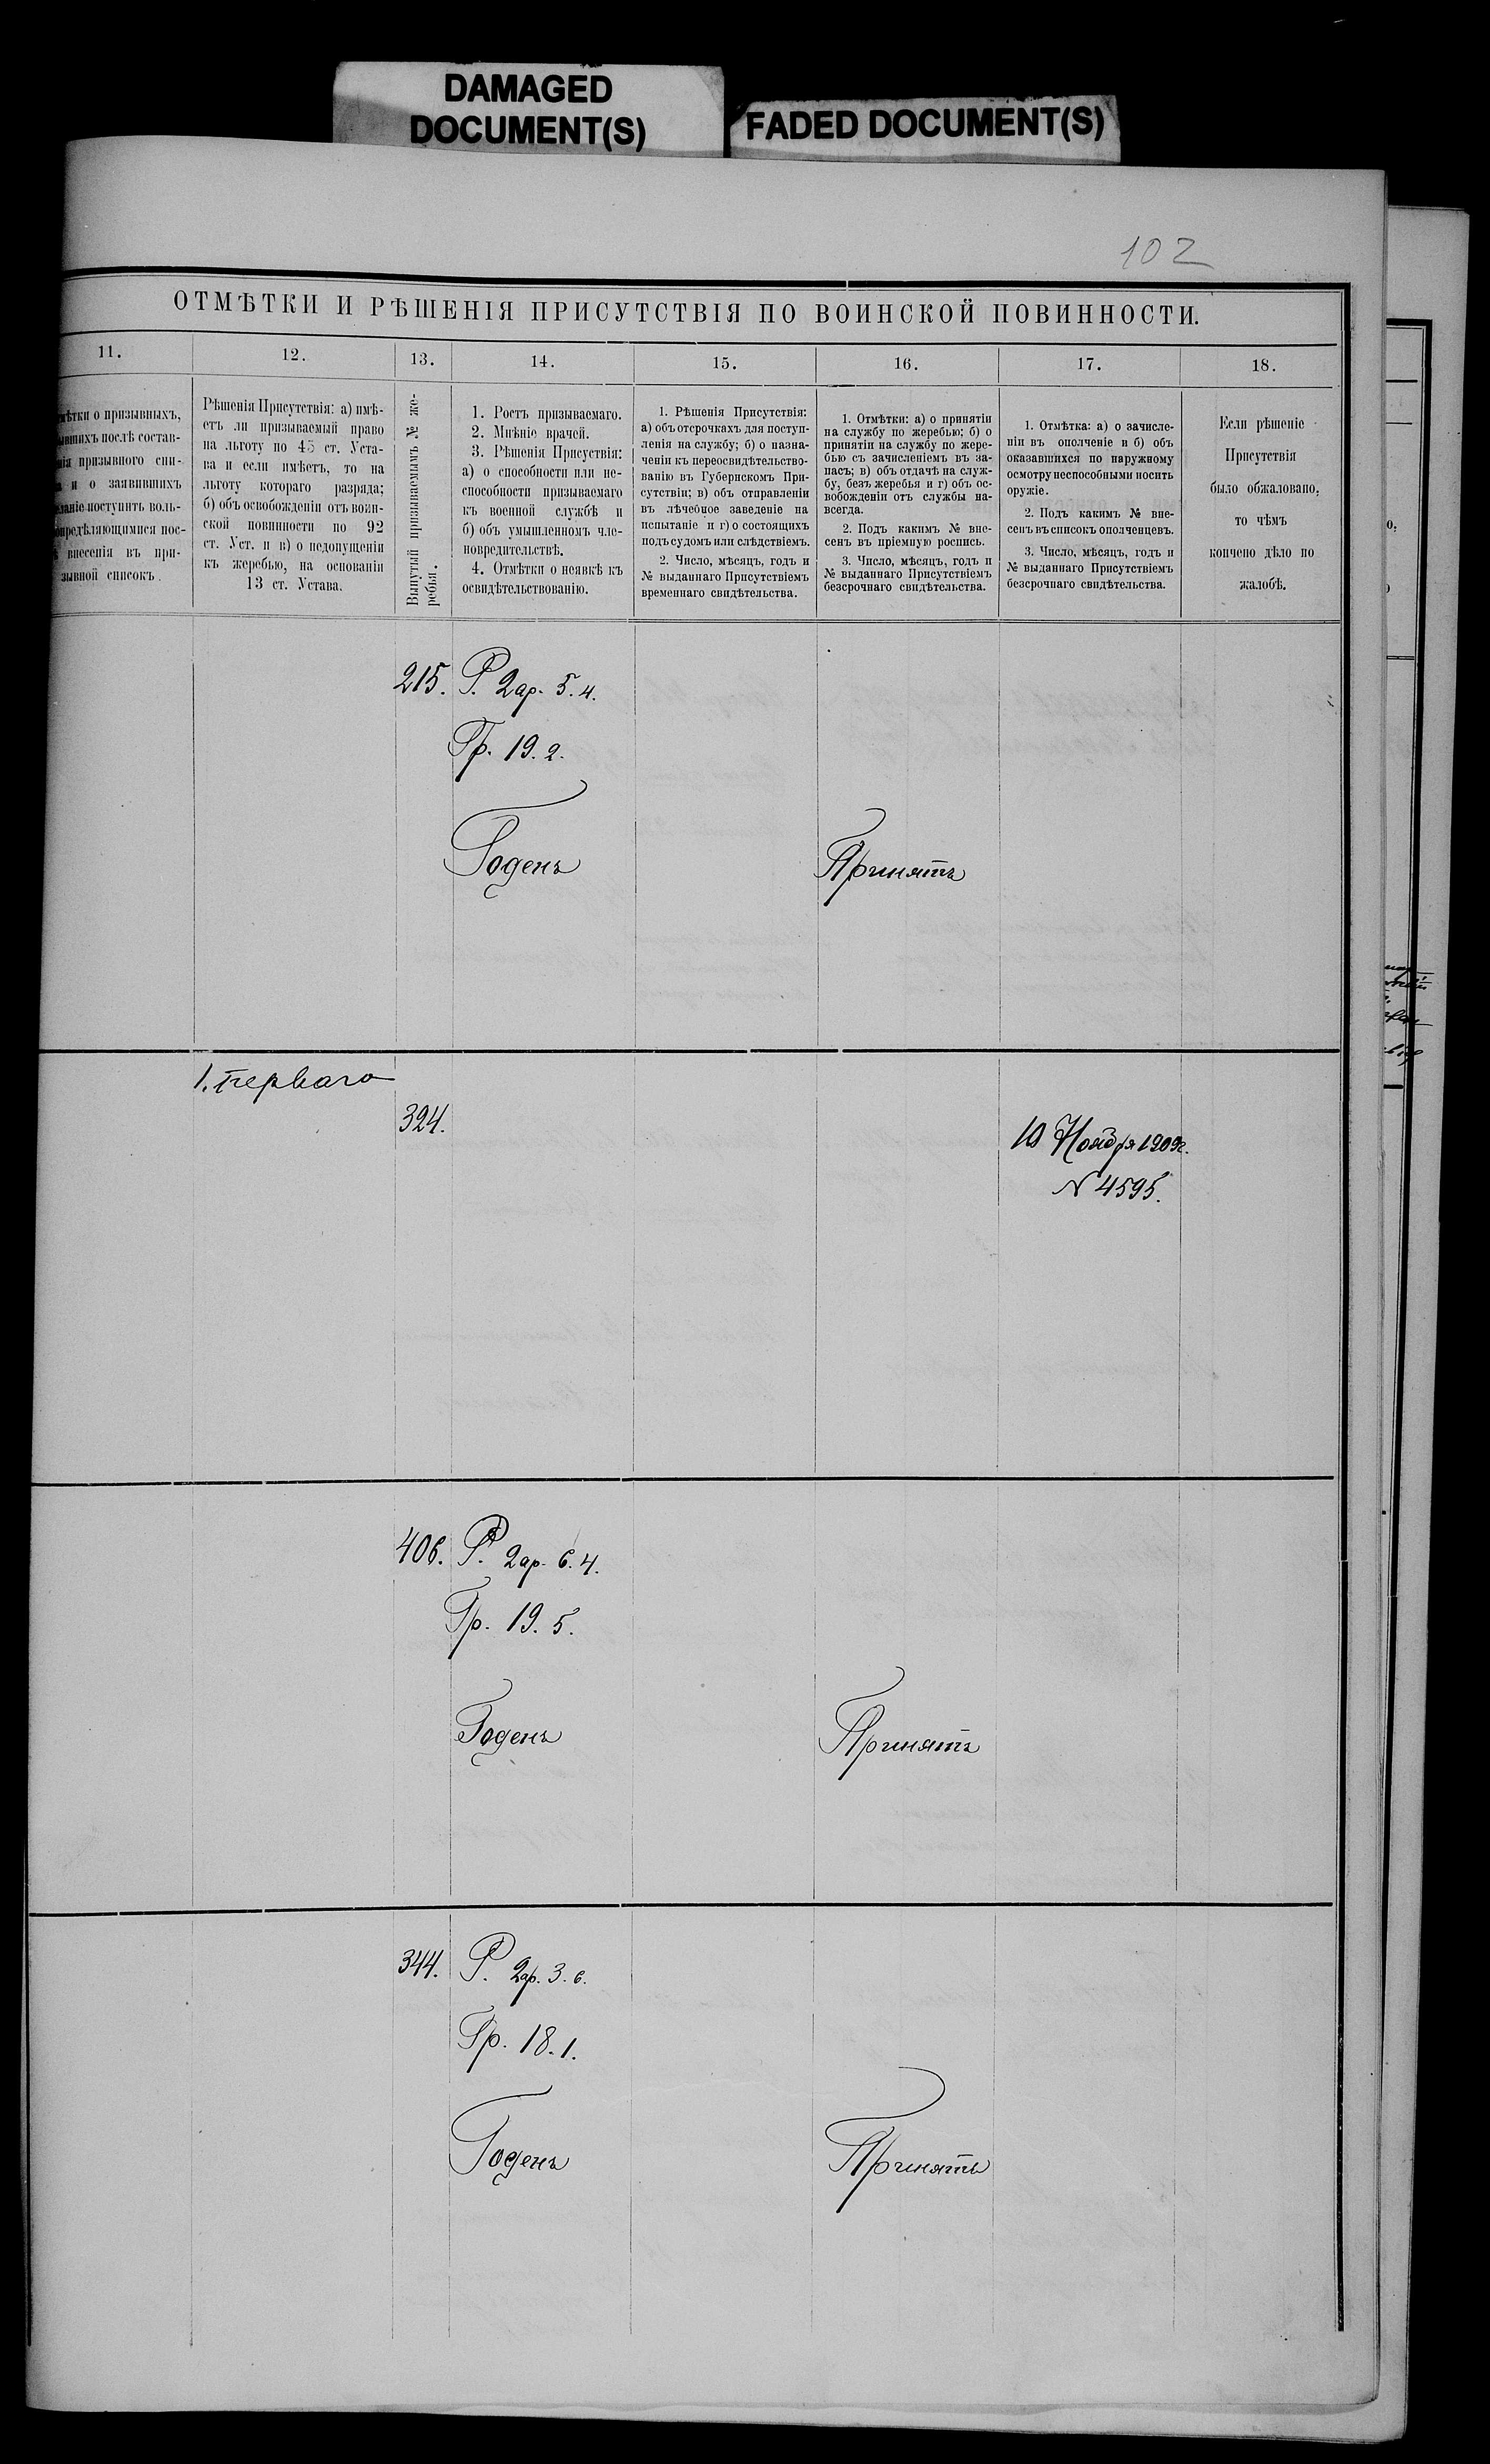 DAMAGED
DOCUMENT(S)
FADED DOCUMENT(S)
102
ОТМѢТКИ И РѢШЕНІЯ ПРИСУТСТВІЯ ПО ВОИНСКОЙ ПОВИННОСТИ.
11.
12.
13.
14.
15.
16.
17.
18.
о призывныхъ,
послѣ состав-
призывного спи-
и о заявившихъ
поступить воль-
пос-
внесенія въ при-
зывной списокъ.
Рѣшенія Присутствія: а) имѣ-
етъ ли призываемый право
на льготу по 45 ст. Уста-
ва и если имѣетъ, то на
льготу котораго разряда;
б) объ освобожденіи отъ воин-
ской повинности по 92
ст. Уст. и в) о недопущеніи
къ жеребью, на основаніи
13 ст. Устава.
Вынутый призываемымъ № же-
ребья.
1. Ростъ призываемаго.
2. Мнѣніе врачей.
3. Рѣшенія Присутствія:
а) о способности или не-
способности призываемаго
къ военной службѣ и
б) объ умышленномъ чле-
новредительствѣ.
4. Отмѣтки о неявкѣ къ
освидѣтельствованію.
1. Рѣшенія Присутствія:
а) объ отсрочкахъ для поступ-
ленія на службу; б) о назна-
ченіи къ переосвидѣтельство-
ванію въ Губернскомъ При-
сутствіи; в) объ отправленіи
въ лѣчебное заведеніе на
испытаніе и г) о состоящихъ
подъ судомъ или слѣдствіемъ.
2. Число, мѣсяцъ, годъ и
№ выданнаго Присутствіемъ
временнаго свидѣтельства.
1. Отмѣтки: а) о принятіи
на службу по жеребью; б) о
принятіи на службу по жере-
бью съ зачисленіемъ въ за-
пасъ; в) объ отдачѣ на служ-
бу, безъ жеребья и г) объ ос-
вобожденіи отъ службы на-
всегда.
2. Подъ какимъ № вне-
сенъ въ пріемную роспись.
3. Число, мѣсяцъ, годъ и
№ выданнаго Присутствіемъ
безсрочнаго свидѣтельства.
1. Отмѣтка: а) о зачисле-
ніи въ ополченіе и б) объ
оказавшихся по наружному
осмотру неспособными носить
оружіе.
2. Подъ какимъ № вне-
сенъ въ списокъ ополченцевъ.
3. Число, мѣсяцъ, годъ и
№ выданнаго Присутствіемъ
безсрочнаго свидѣтельства.
Если рѣшеніе
Присутствія
было обжаловано,
то чѣмъ
кончено дѣло по
жалобѣ.
215. Р. 2ар. 5. 4.
Гр. 19. 2.
Годенъ
Принятъ
1. перваго
324.
10 Ноября 1909г.
N 4595.
406. Р. 2ар. 6. 4.
Гр. 19. 5.
Годенъ
Принятъ
344. Р. 2ар. 3. 6.
Гр. 18. 1.
Годенъ
Принятъ